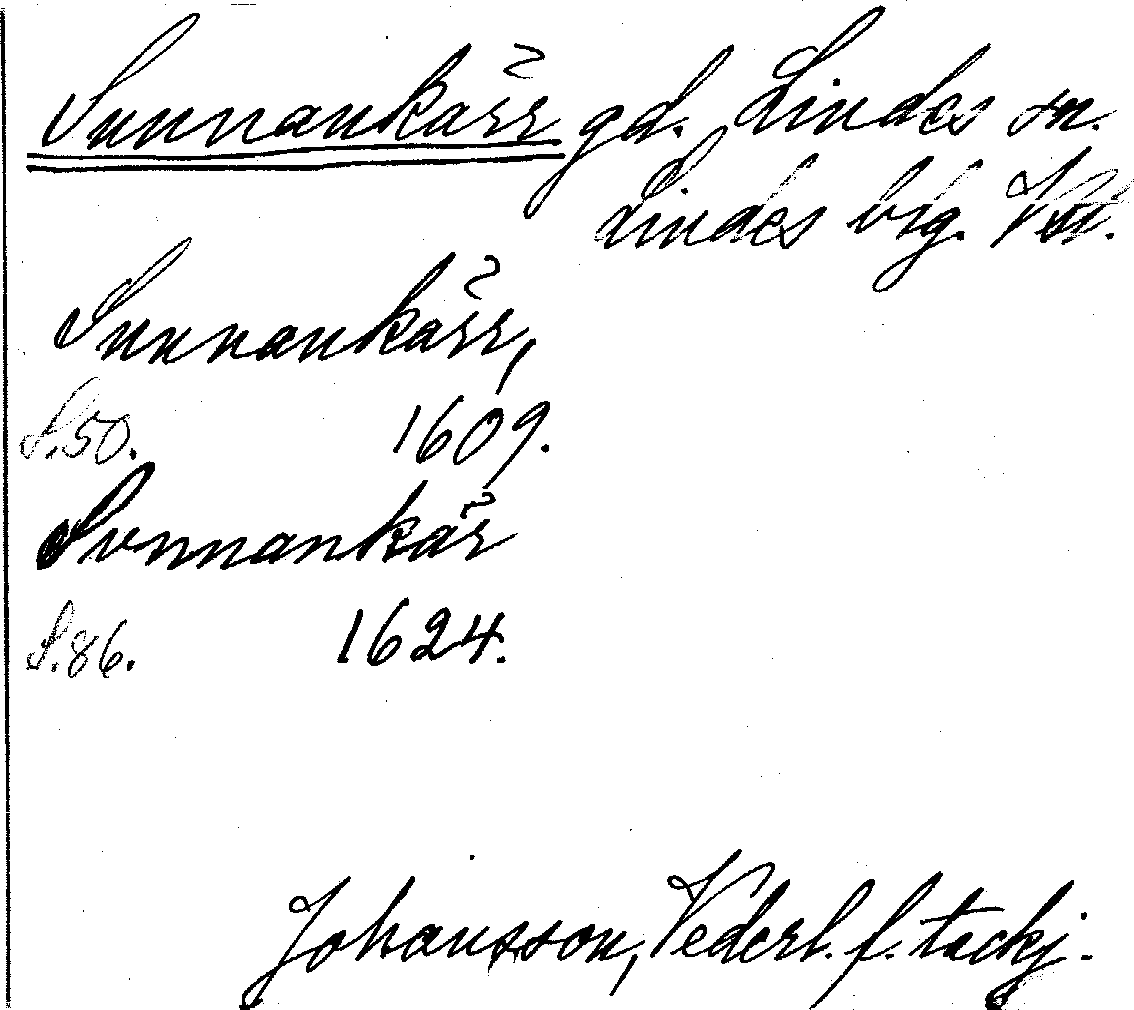 Sunnankärr gd. Lindes sn.
Lindes brg. Vstl.
Sunnankärr,
S.50. 1609.
Sunnankär
S.86. 1624.
Johansson, Vederl. f. tackj.